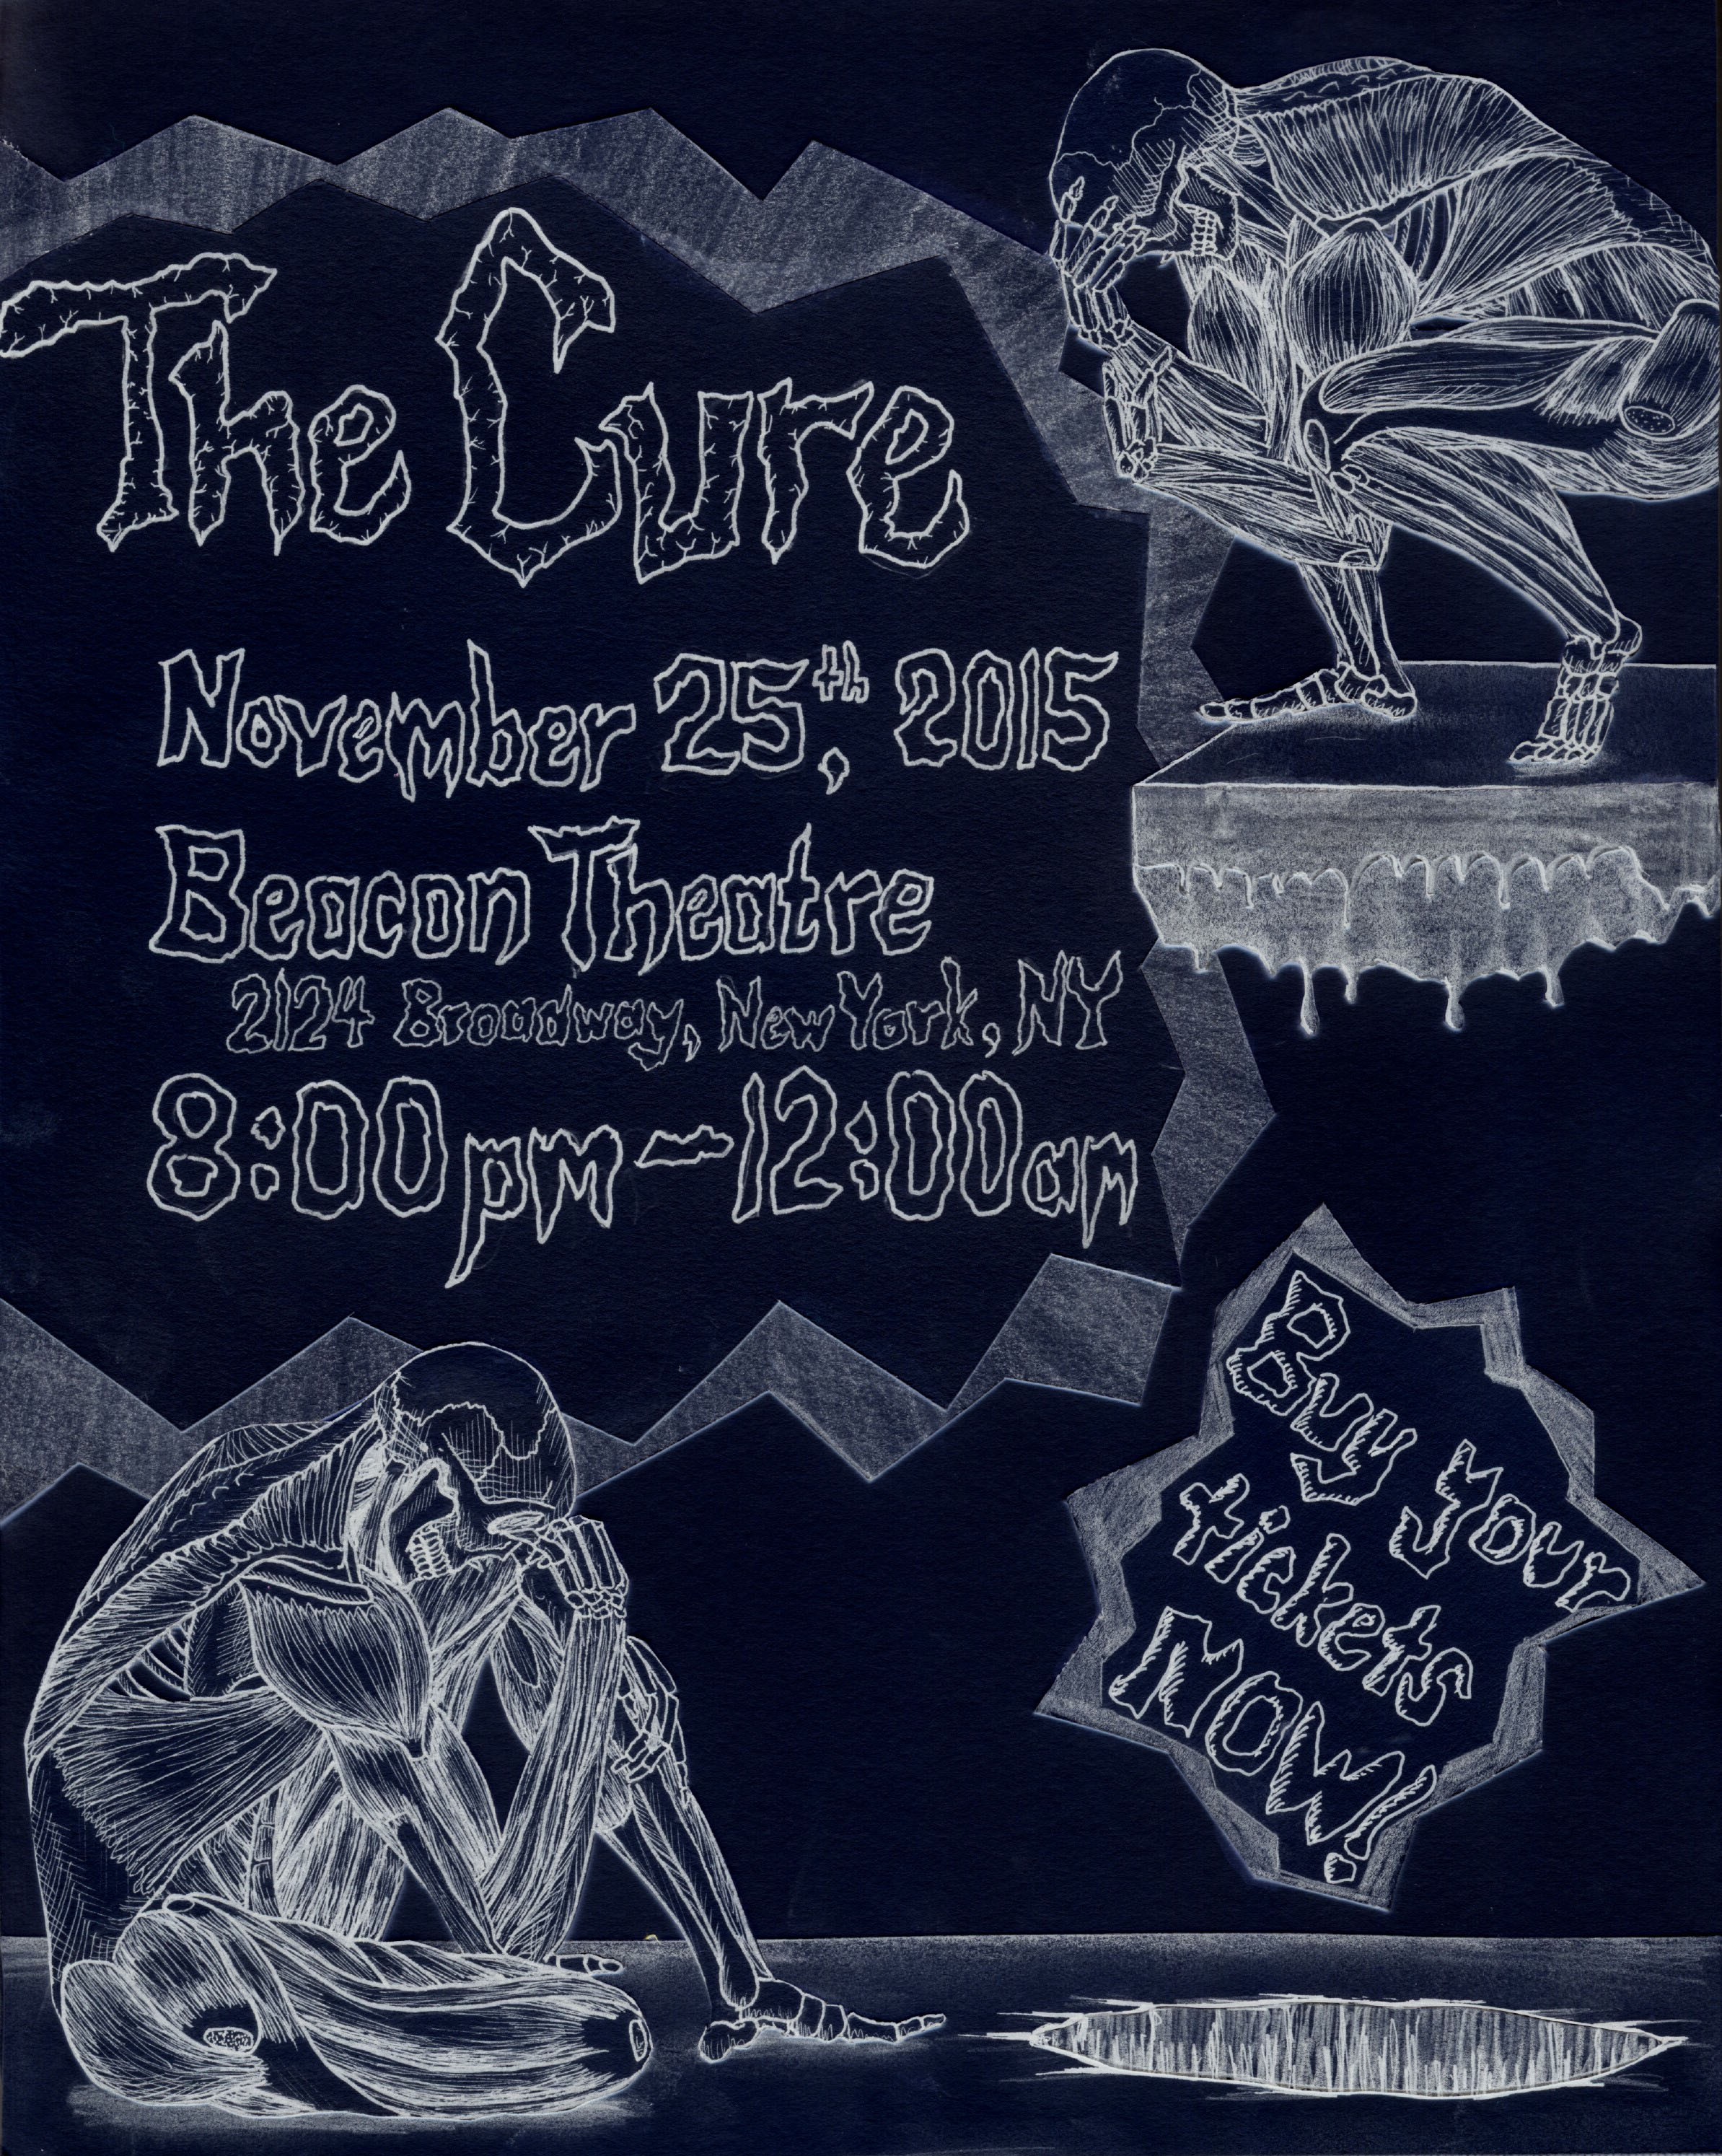 The Cure
November 25th, 2015
Beacon Theatre
2124 Broadway, New York, NY
8:00pm-12:00am
Buy Your
tickets
NOW!